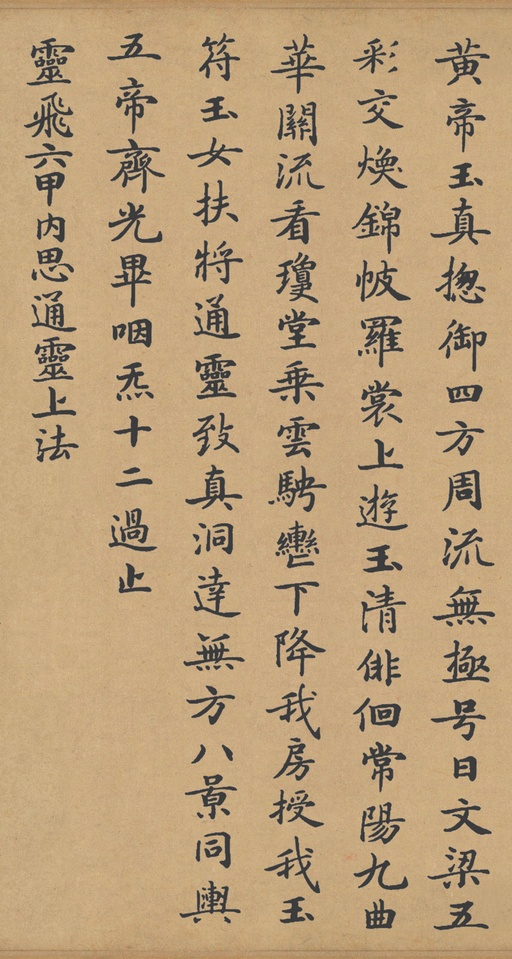 黃帝玉真揔御四方周流無極号曰文梁五
彩交煥錦帔羅裳上遊玉清俳佪常陽九曲
華關流看瓊堂乗雲駚轡下降我房授我玉
符玉女扶將通靈致真洞達無方八景同輿
五帝齊光畢咽炁十二過止
靈飛六甲内思通靈上法